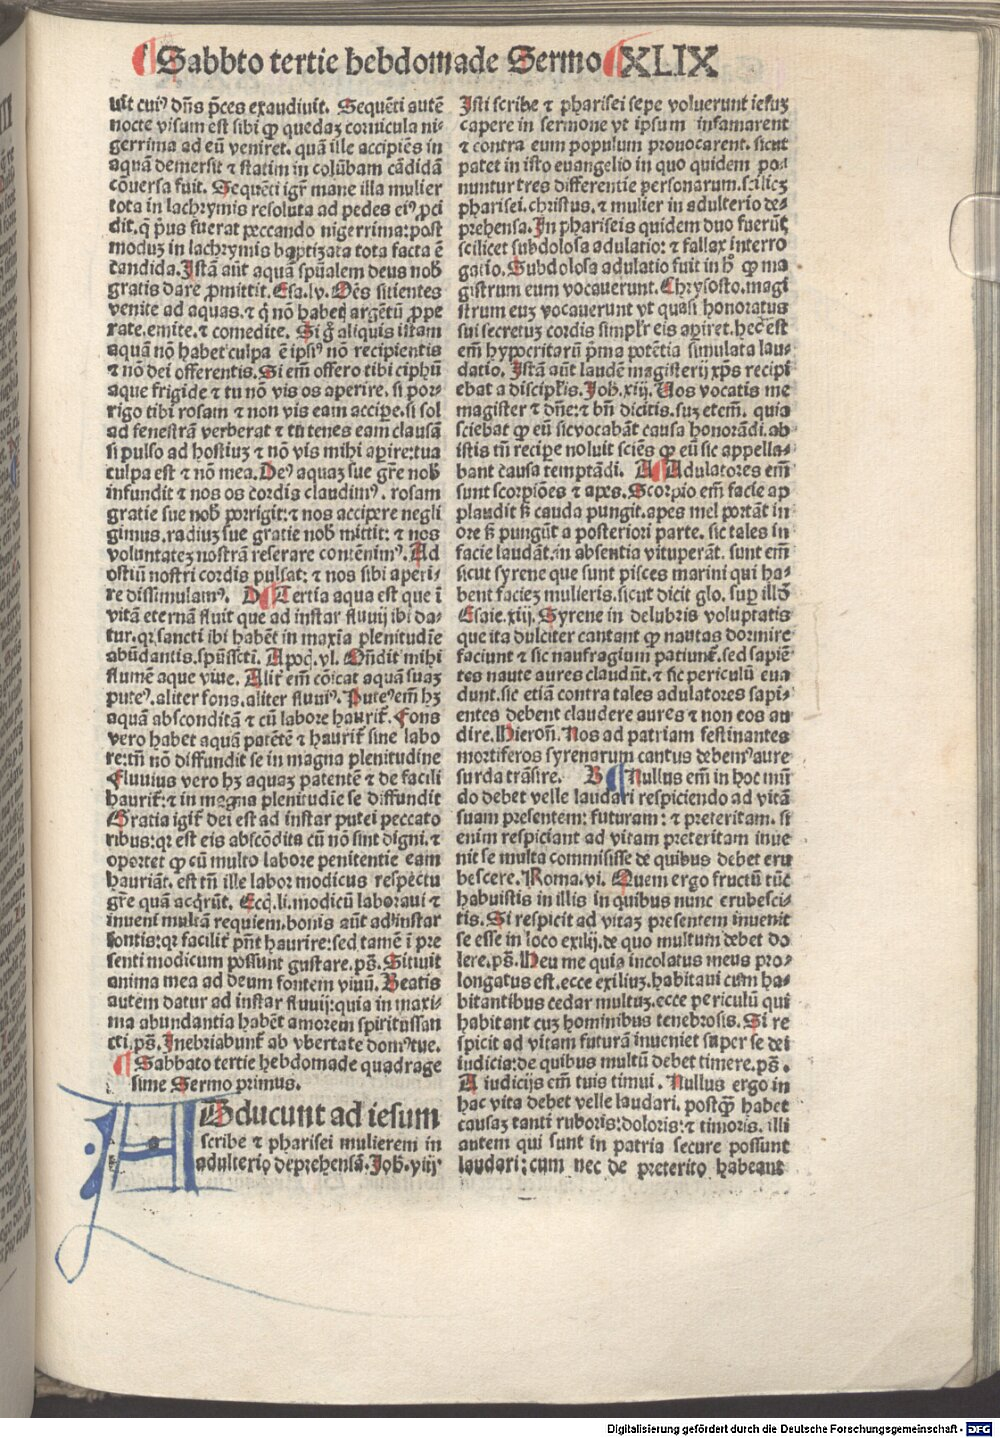 ¶ Sabbto tertie hebdomade Sermo ¶ XLIX
uit cuiꝰ dñs p̄ces exaudiuit. Sequēti autē
nocte visum est sibi ꝙ quedaꝫ cornicula ni-
gerrima ad eū veniret. quā ille accipiēs in
aquā demersit ⁊ statim in colūbam cādidā
cōuersa fuit. Sequēti igr̄ mane illa mulier
tota in lachrymis resoluta ad pedes eiꝰ ꝓci
dit. q̄ p̄us fuerat peccando nigerrima: post
moduꝫ in lachrymis baptizata tota facta ē
candida. Istā aūt aquā spūalem deus nob̄
gratis dare ꝓmittit. Esa. lv. Oēs sitientes
venite ad aquas. ⁊ q̄ nō habetꝭ argētū ꝓpe
rate. emite. ⁊ comedite. Si g̊ aliquis istam
aquā nō habet culpa ē ipsiꝰ nō recipientis
⁊ nō dei offerentis. Si em̄ offero tibi ciphū
aque frigide ⁊ tu nō vis os aperire. si por-
rigo tibi rosam ⁊ non vis eam accipe. si sol
ad fenestrā verberat ⁊ tu tenes eam clausā
si pulso ad hostiuꝫ ⁊ nō vis mihi aꝑire: tua
culpa est ⁊ nō mea. Deꝰ aquaꝫ sue gr̄e nob̄
infundit ⁊ nos os cordis claudimꝰ. rosam
gratie sue nob̄ porrigit: ⁊ nos accipere negli
gimus. radiuꝫ sue gratie nob̄ mittit: ⁊ nos
voluntateꝫ nostrā reserare contēnimꝰ. Ad
ostiū nostri cordis pulsat: ⁊ nos sibi aperi-
re dissimulamꝰ. D ¶ Tertia aqua est que ī
vitā eternā fluit que ad instar fluuij ibi da-
tur. qꝛ sancti ibi habēt in maxīa plenitudīe
abūdantis. spūsscti. Apoc̄. vl. Oñdit mihi
flumē aque viue. Alit̄ em̄ cōicat aquā suaꝫ
puteꝰ. aliter fons. aliter fluuiꝰ. Puteꝰ em̄ hꝫ
aquā absconditā ⁊ cū labore haurit̄. Fons
vero habet aquā patētē ⁊ haurit̄ sine labo
re: tn̄ nō diffundit se in magna plenitudine
Fluuius vero hꝫ aquaꝫ patentē ⁊ de facili
haurit̄: ⁊ in magna plenitudīe se diffundit
Gratia igit̄ dei est ad instar putei peccato
ribus: qꝛ est eis abscōdita cū nō sint digni. ⁊
oportet ꝙ cū multo labore penitentie eam
hauriāt. est tn̄ ille labor modicus respectu
gr̄e quā acq̄rūt. Ecc̄. li. modicū laboraui ⁊
inueni multā requiem. bonis aūt ad instar
fontis: qꝛ facilit̄ pn̄t haurire: sed tamē ī pre
senti modicum possunt gustare. pš. Sitiuit
anima mea ad deum fontem viuū. Beatis
autem datur ad instar fluuij: quia in maxi-
ma abundantia habēt amorem spiritussan
cti. pš. Inebriabunt̄ ab vbertate domꝰ tue.
¶ Sabbato tertie hebdomade quadrage
sime Sermo primus.
ADducunt ad iesum
scribe ⁊ pharisei mulierem in
adulterio deprehensā. Joh. viij
Isti scribe ⁊ pharisei sepe voluerunt iesuꝫ
capere in sermone vt ipsum infamarent
⁊ contra eum populum prouocarent. sicut
patet in isto euangelio in quo quidem po-
nuntur tres differentie personarum. scilicꝫ
pharisei. christus. ⁊ mulier in adulterio de-
prehensa. In phariseis quidem duo fuerūt
scilicet subdolosa adulatio: ⁊ fallax interro
gatio. Subdolosa adulatio fuit in h̊ ꝙ ma
gistrum eum vocauerunt. Chrysosto. magi
strum euꝫ vocauerunt vt quasi honoratus
sui secretuꝫ cordis simpl̄r eis aꝑiret. hec est
em̄ hypocritarū p̄ma potētia simulata lau-
datio. Istā aūt laudē magisterij xp̄s recipi
ebat a discipl̄is. Joh. xiij. Uos vocatis me
magister ⁊ dn̄e: ⁊ bn̄ dicitis. suꝫ etem̄. quia
sciebat ꝙ eū sic vocabāt causa honorādi. ab
istis tn̄ recipe noluit sciēs ꝙ eū sic appella-
bant causa temptādi. A ¶ Adulatores em̄
sunt scorpiōes ⁊ apes. Scorpio em̄ facie ap
plaudit sꝫ cauda pungit. apes mel portāt in
ore sꝫ pungūt a posteriori parte. sic tales in
facie laudāt. in absentia vituperāt. sunt em̄
sicut syrene que sunt pisces marini qui ha-
bent facieꝫ mulieris. sicut dicit glo. suꝑ illō
Esaie. xiij. Syrene in delubris voluptatis
que ita dulciter cantant ꝙ nautas dormire
faciunt ⁊ sic naufragium patiunt̄. sed sapiē
tes naute aures claudūt. ⁊ sic periculū eua
dunt. sic etiā contra tales adulatores sapi-
entes debent claudere aures ⁊ non eos au
dire. Hieroñ. Nos ad patriam festinantes
mortiferos syrenarum cantus debemꝰ aure
surda trāsire. B ¶ Nullus em̄ in hoc mū
do debet velle laudari respiciendo ad vitā
suam presentem: futuram: ⁊ preteritam. si
enim respiciant ad vitam preteritam inue
nit se multa commisisse de quibus debet eru
bescere. Roma. vi. Quem ergo fructū tūc
habuistis in illis in quibus nunc erubesci-
tis. Si respicit ad vitaꝫ presentem inuenit
se esse in loco exilij. de quo multum debet do
lere. pš. Heu me quia incolatus meus pro-
longatus est. ecce exiliuꝫ. habitaui cum ha-
bitantibus cedar multuꝫ. ecce periculū qui
habitant cuꝫ hominibus tenebrosis. Si re
spicit ad vitam futurā inueniet super se dei
iudicia: de quibus multū debet timere. pš.
A iudicijs em̄ tuis timui. Nullus ergo in
hac vita debet velle laudari. postꝙ habet
causaꝫ tanti ruboris: doloris: ⁊ timoris. illi
autem qui sunt in patria secure possunt
laudari: cum nec de preterito habeant
Digitalisierung gefördert durch die Deutsche Forschungsgemeinschaft - DFG